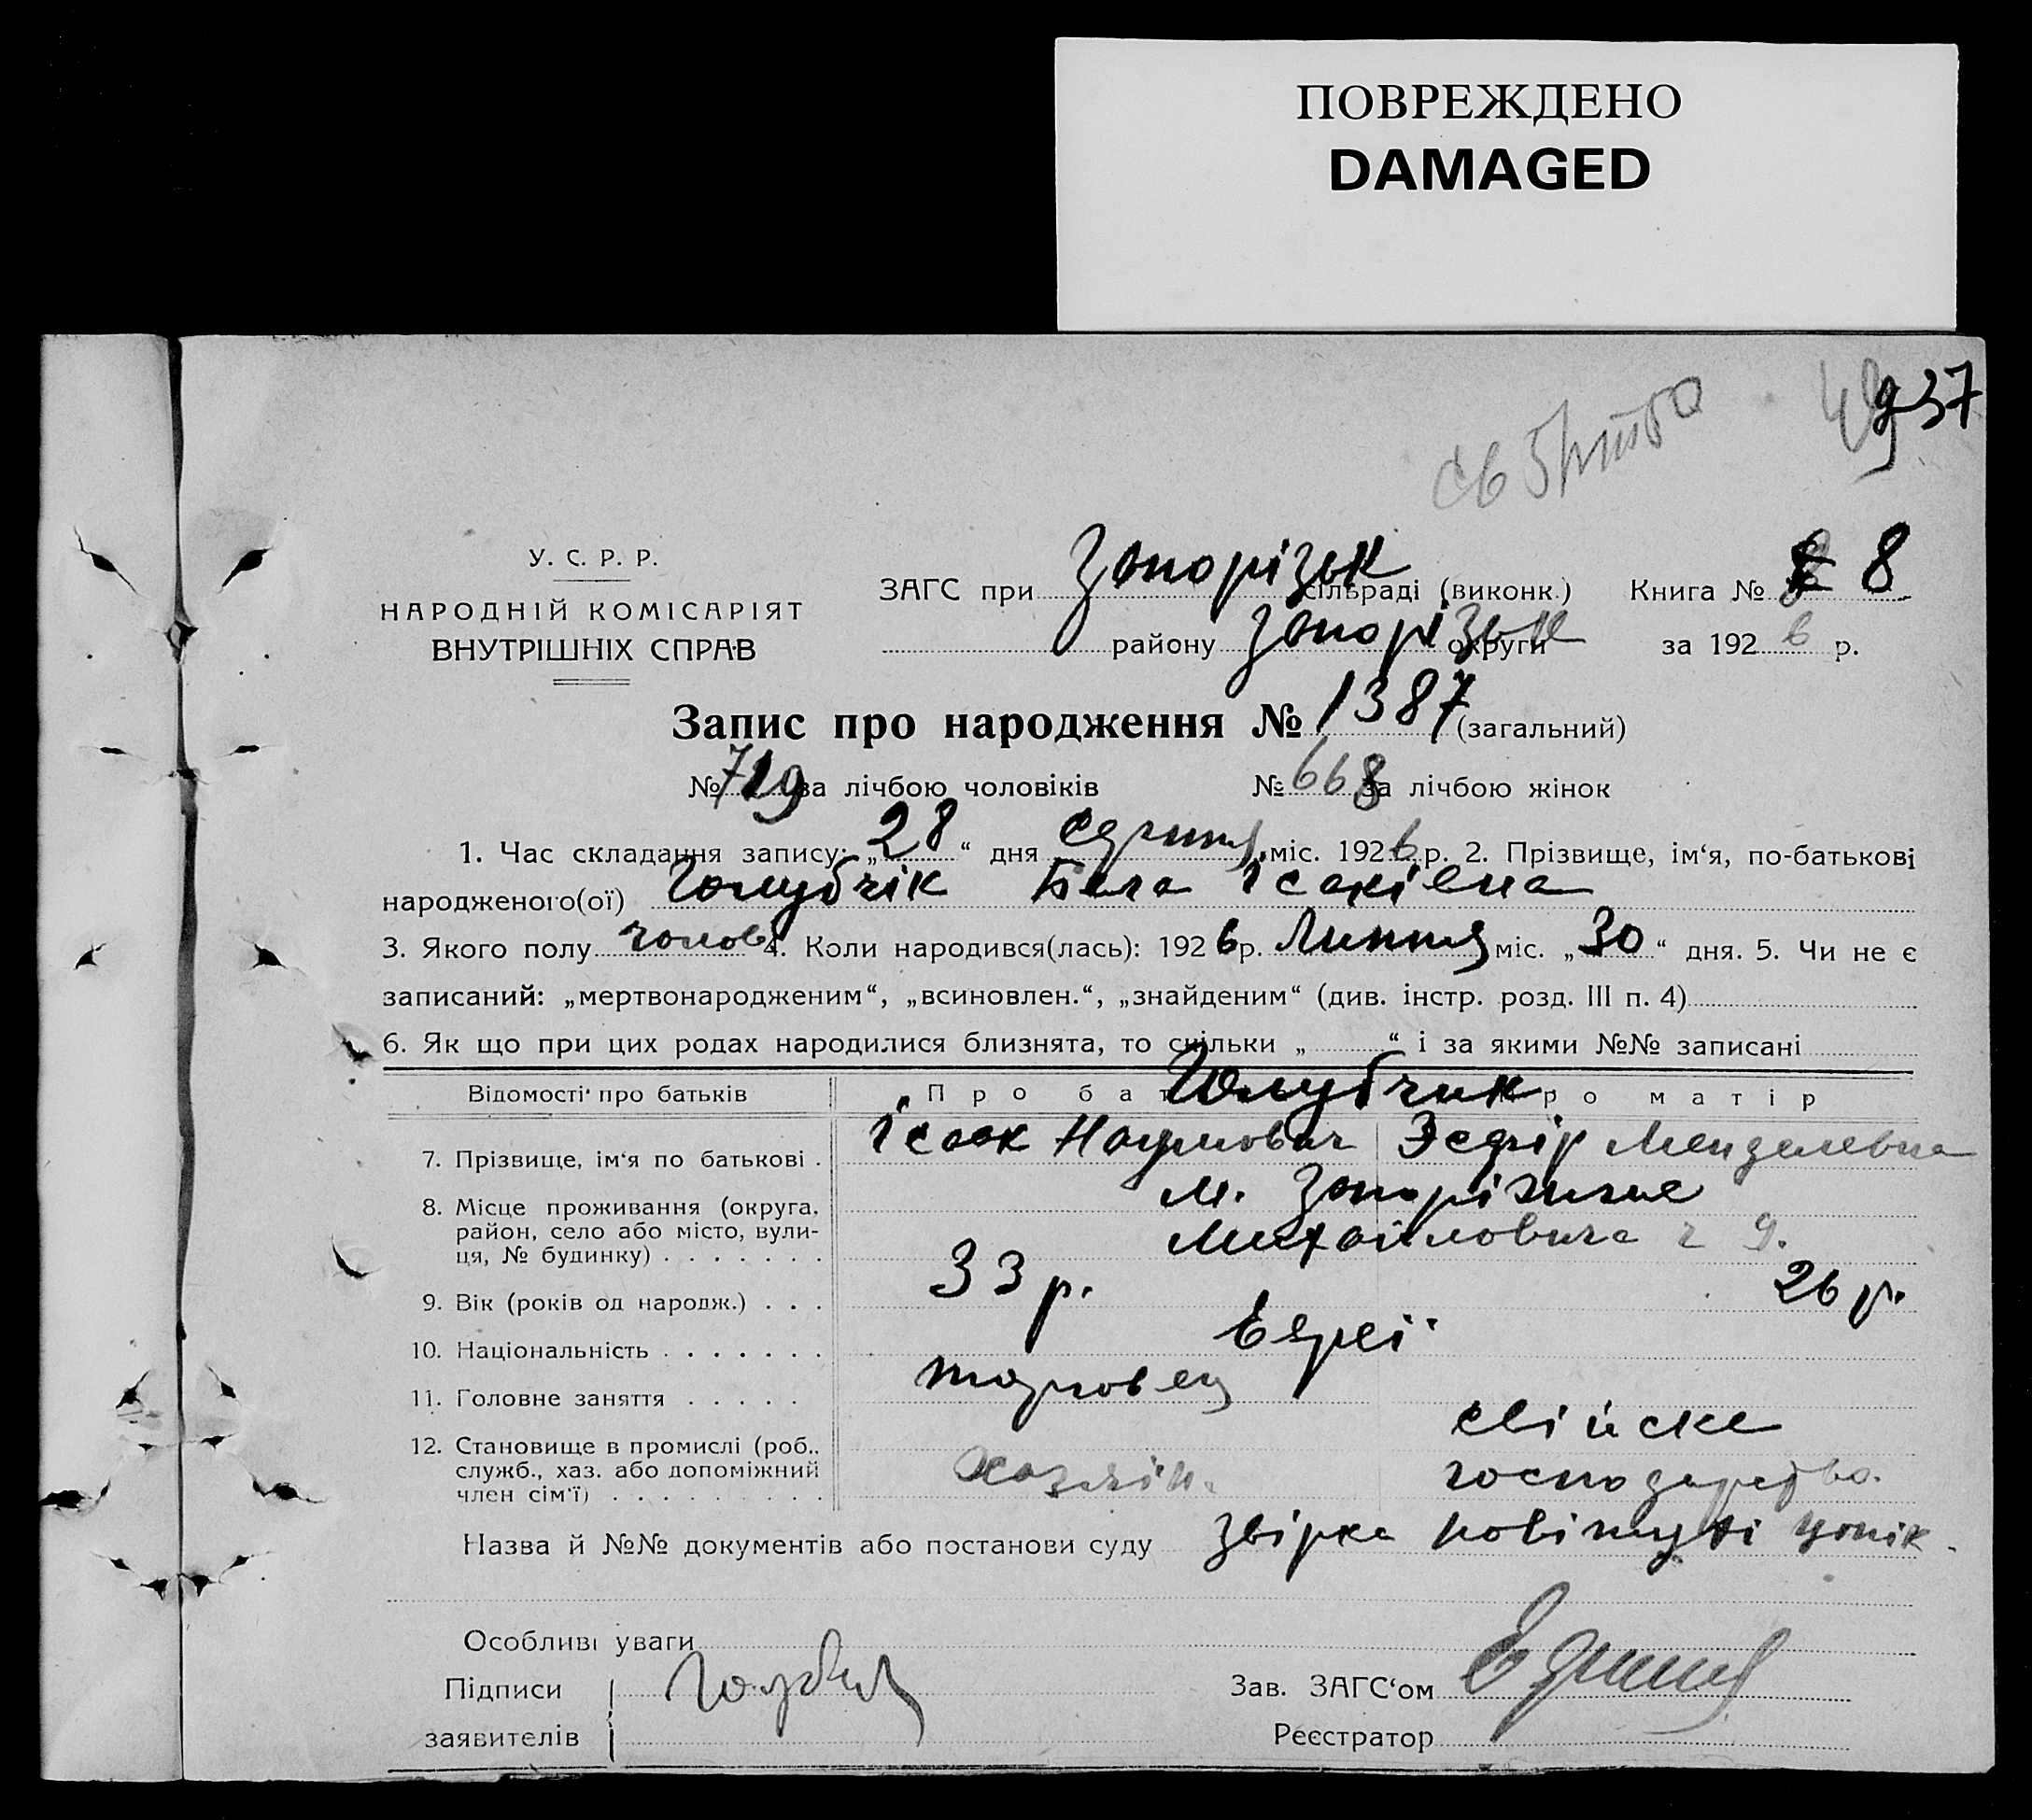 ПОВРЕЖДЕНО
DAMAGED
937
У. С. Р. Р.
НАРОДНІЙ КОМІСАРІЯТ
ВНУТРІШНІХ СПРАВ
ЗАГС при Запорізьк сільраді (виконк.) Книга № 8
району Запорізьк округи за 1926 р.
Запис про народження № 1387 (загальний)
№ 719 за лічбою чоловіків № 668 за лічбою жінок
1. Час складання запису: „28“ дня серпня міс. 1926 р. 2. Прізвище, ім‘я, по-батькові
народженого(ої) Голубчік Бела Ісаківна
3. Якого полу чолов 4. Коли народився(лась): 1926 р. Липня міс. „30“ дня. 5. Чи не є
записаний: „мертвонародженим“, „всиновлен.“, „знайденим“ (див. інстр. розд. III п. 4)
6. Як що при цих родах народилися близнята, то скільки „ “ і за якими №№ записані
Відомості про батьків Про бат Голубчик ро матір
7. Прізвище, ім‘я по батькові . Ісаак Наумович Эсфір Менделевна
8. Місце проживання (округа, район, село або місто, вулиця, № будинку) м. Запоріжжє
Михайловича 9.
9. Вік (років од народж.) 33 р. 26 р.
10. Національність Евреї
11. Головне заняття торговец
свійске
12. Становище в промислі (роб., служб., хаз. або допоміжний член сім‘ї) хазяін. господарство.
Назва й №№ документів або постанови суду звірка
Особливі уваги
Підписи
заявителів
Зав. ЗАГС‘ом
Реєстратор